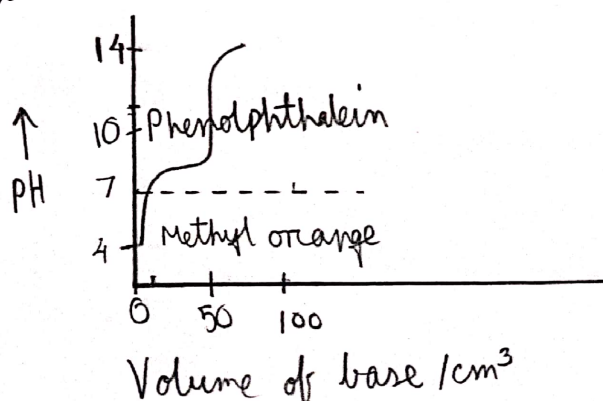 14
10 Phenolphthalein
↑
pH
7
4 Methyl orange
0 50 100
Volume of base /cm³